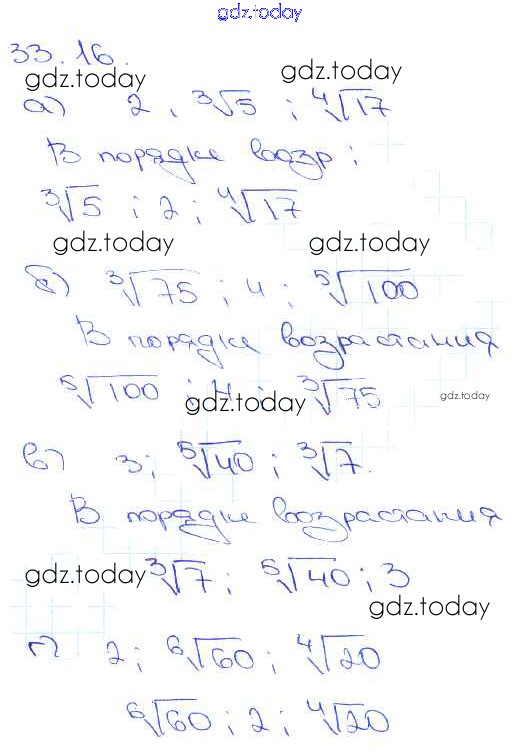 gdz.today
33.16.
gdz.today gdz.today
а) 2, ∛5; ∜17
В порядке возр;
∛5; 2; ∜17
gdz.today gdz.today
б) ∛75; 4; ⁵√100
В порядке возрастания
⁵√100; 4; ∛75
gdz.today gdz.today
в) 3; ⁵√40; ∛7.
В порядке возрастания
∛7; ⁵√40; 3
gdz.today gdz.today
г) 2; ⁶√60; ∜20
⁶√60; 2; ∜20